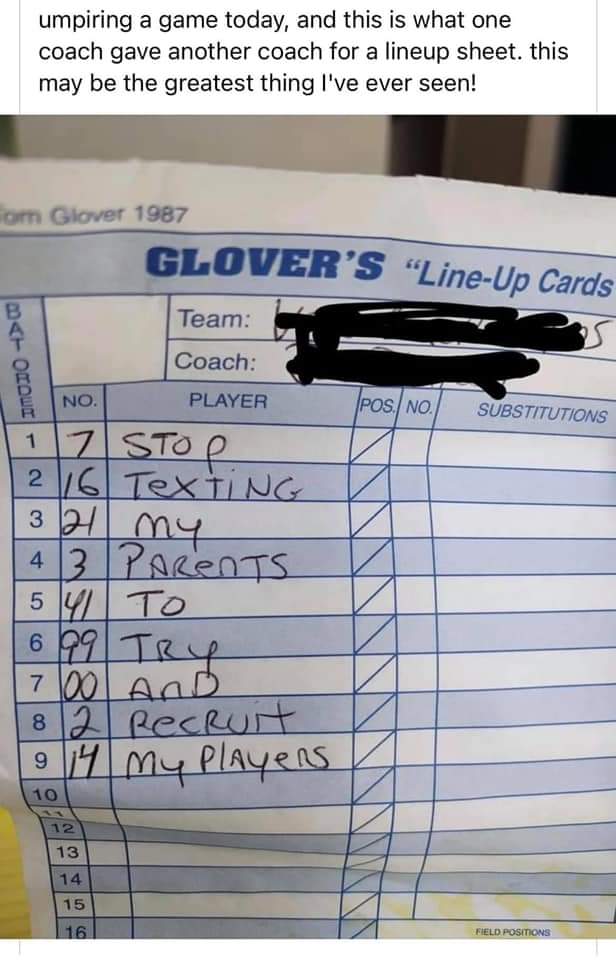 umpiring a game today, and this is what one
coach gave another coach for a lineup sheet. this
may be the greatest thing I've ever seen!
om Glover 1987
GLOVER'S "Line-Up Cards
BAT ORDER
Team:
Coach:
NO. PLAYER POS. NO. SUBSTITUTIONS
1 7 STOP
2 16 TexTiNG
3 21 my
4 3 PAReNTS
5 41 To
6 99 TRy
7 00 AnD
8 2 RecRuit
9 14 My PlAyeRS
10
11
12
13
14
15
16
FIELD POSITIONS